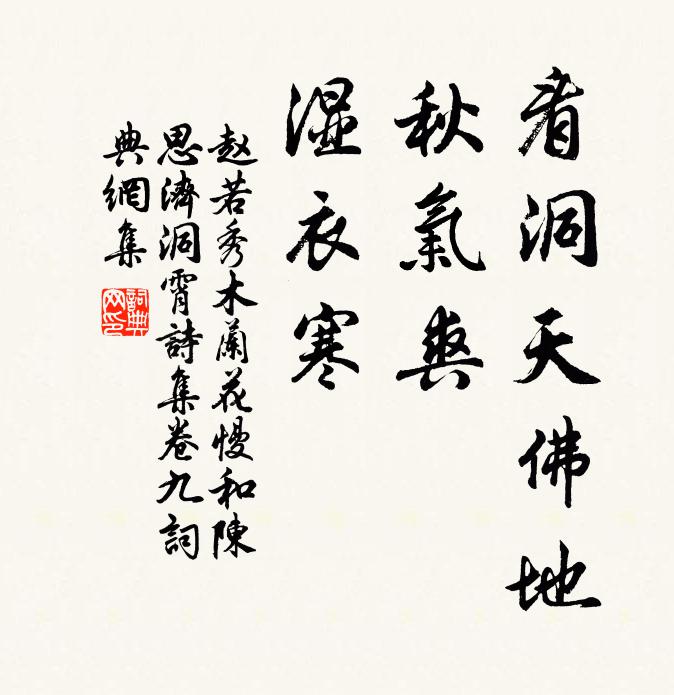 看洞天佛地
秋氣爽
濕衣寒
赵若秀木蘭花慢和陳
思濟洞霄詩集卷九詞
典網集
詞典
网印